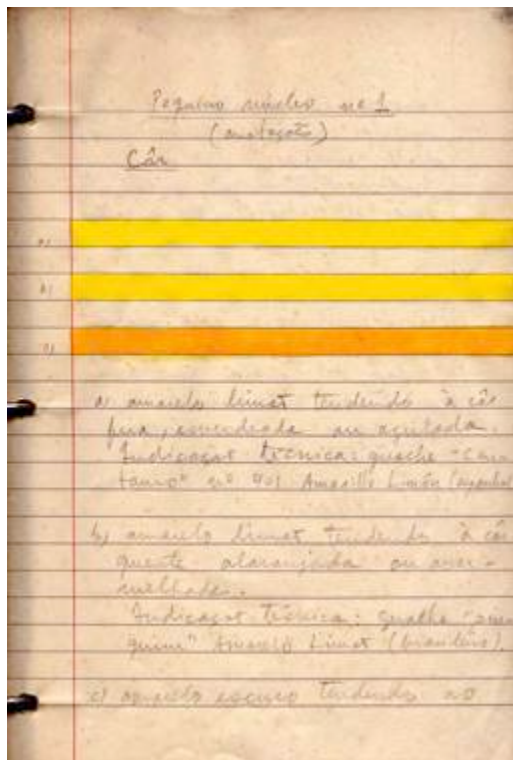 Pequeno núcleo nº 1
(anotações)
Côr
a)
b)
c)
a) amarelo limão tendendo à côr
fria, esverdeada ou azulada.
Indicação técnica: guache "
nº 401 Amarillo Limón (espanhol
b) amarelo limão tendendo à côr
quente alaranjada ou aver-
melhada.
Indicação técnica: guache
Amarelo Limão (brasileiro).
c) amarelo escuro tendendo ao